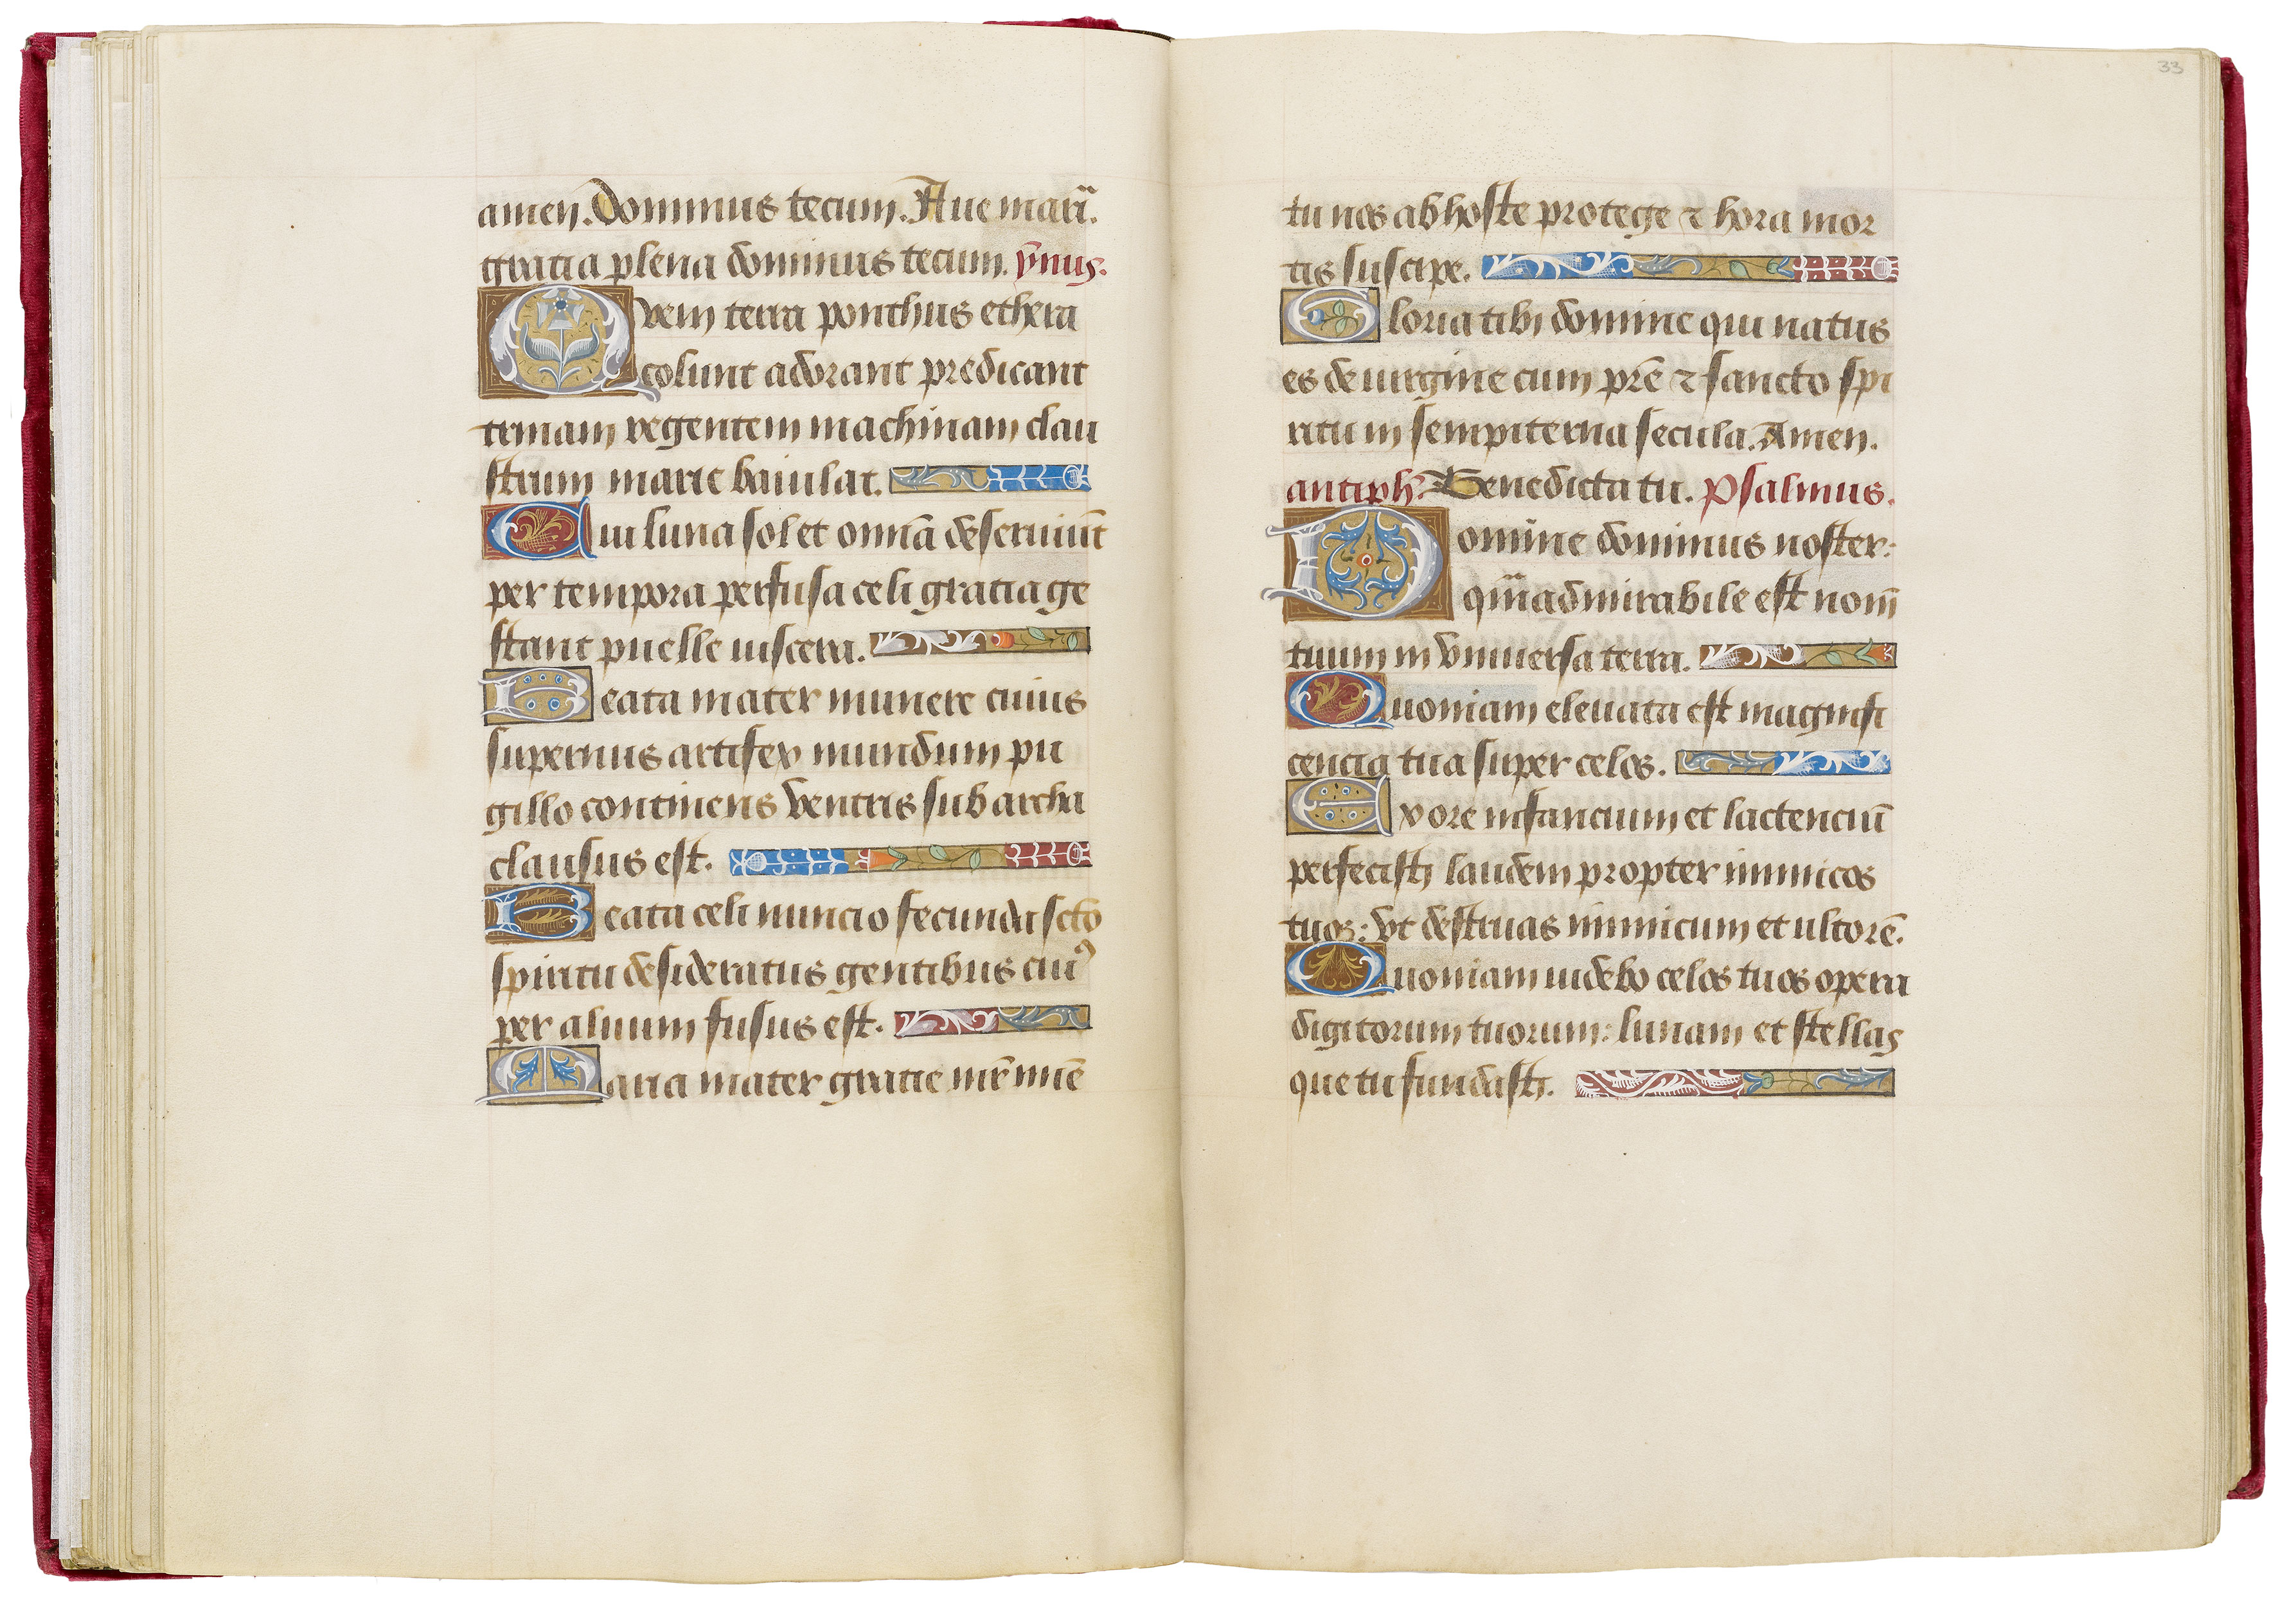 amen̄. Dominus tecum. Aue marī.
gratia plena dominus tecum. ẏm̄nus.
Quem terra ponthus ethera
colunt adorant predicant
trinam regentem machinam clau
strum marie baiulat.
Cui luna sol et omīa deseruiūt
per tempora perfusa celi gratia ge
stant puelle uiscera.
Beata mater munere cuius
supernus artifex mundum pu
gillo continens ventris sub archa
clausus est.
Beata celi nuncio fecunda scto
spiritu desideratus gentibus cui⁹
per aluum fusus est.
Maria mater gratie mr̄ miē
33
tu nos ab hoste protege ⁊ hora mor
tis suscipe.
Gloria tibi domine qui natus
es de uirgine cum pr̄e ⁊ sancto spi
ritu in sempiterna secula. Amen.
antiph. Benedicta tu. Psalmus.
Domine dominus noster:
qm̄ admirabile est nom̄
tuum in vniuersa terra.
Quoniam eleuata est magnifi
cencia tua super celos.
Exore infancium et lactenciū
perfecisti laudem propter inimicos
tuos: vt destruas inimicum et ultorē.
Quoniam uidebo celos tuos opera
digitorum tuorum: lunam et stellas
que tu fundasti.